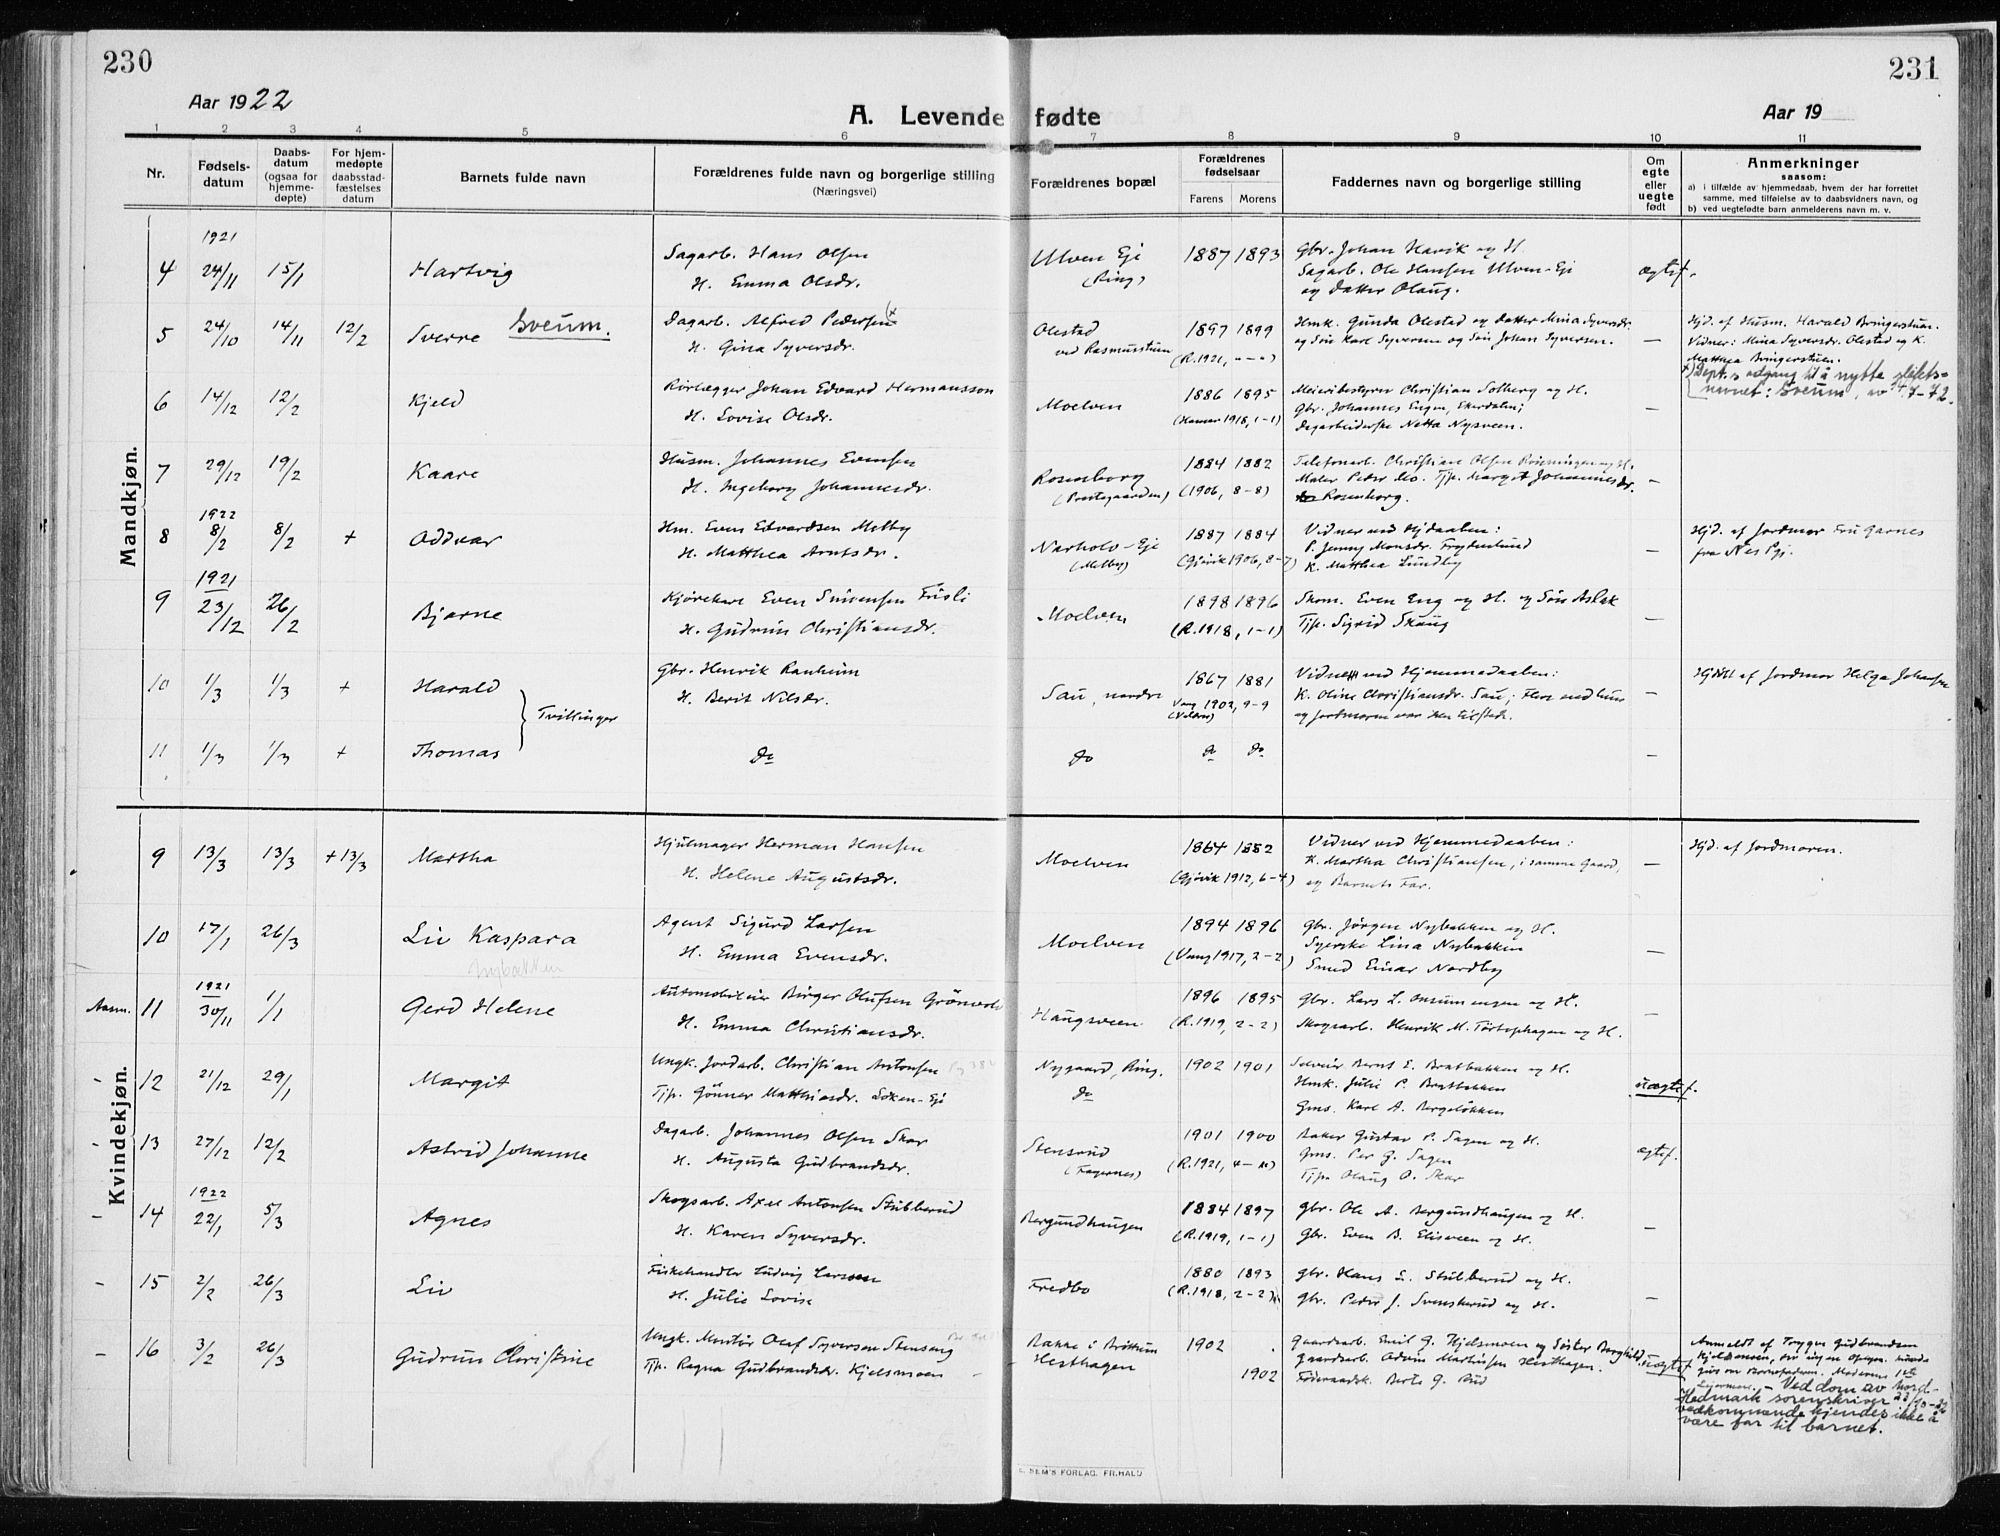 230
231
Aar 1922
Aar 19
A. Levende fødte
1 2 3 4 5 6 7 8 9 10 11
Nr.
Fødsels-
datum
Daabs-
datum
(ogsaa for
hjemme-
døpte)
For hjem-
medøpte
daabsstad-
fæstelses
datum
Barnets fulde navn
Forældrenes fulde navn og borgerlige stilling
(Næringsvei)
Forældrenes bopæl
Forældrenes
fødselsaar
Farens Morens
Faddernes navn og borgerlige stilling
Om
egte
eller
uegte
født
Anmerkninger
saasom:
a) i tilfælde av hjemmedaab, hvem der har forrettet
samme, med tilføielse av to daabsvidners navn, og
b) ved uegtefødte barn anmelderens navn m. v.
Mandkjøn.
1921
4 24/11 15/1 Hartvig Sagarb. Hans Olsen Ulven Eje 1887 1893 Gbr. Johan Havik og H.
H. Emma Olsdr. (Ring) Sagarb. Ole Hansen Ulven-Eje ægtef.
og Datter Olaug.
5 24/10 14/11 12/2 Sverre Sveum. Dagarb. Alfred Pedersen Olestad 1897 1899 Hmk. Gunda Olestad og Datter Mina Syversdr. Hjd. af Husm. Harald Bringerstuen.
H. Gina Syversdr. ved Rasmusstuen (R. 1921, og Søn Karl Syversen og Søn Johan Syversen. — Vidner: Mina Syversdr. Olestad og K.
Matthea Bringerstuen.
Dept.s adgang til å nytte slekts-
navnet: Sveum, av 7-72.
6 14/12 12/2 Kjeld Rørlægger Johan Edvard Hermansson Moelven 1886 1895 Meieribestyrer Christian Solberg og H.
H. Lovise Olsdr. (Hamar 1918, 1-1) Gbr. Johannes Engen, Ekerdalen; —
Dagarbeiderske Netta Nysveen.
7 29/12 19/2 Kaare Husm. Johannes Evensen Rosenborg 1884 1882 Telefonarb. Christian Olsen
H. Ingeborg Johannesdr. (Prestgaarden) (1906, 8-8) Maler Peder do. Tjp. Margit Johannesdr. —
Rosenborg.
1922
8 8/2 8/2 + Oddvar Hm. Even Edvardsen Melby Narholo-Eje 1887 1884 Vidner ved Hjdaaben: Hjd. af Jordmor Fru Garnes
H. Matthea Arntsdr. (Melby) (Gjøvik 1906, 8-7) P. Jenny Monsdr. Frydenlund — fra Nes Pgj.
K. Matthea Lundby
1921
9 23/12 26/2 Bjarne Kjørekar Even Simensen Fusli Moelven 1898 1896 Skom. Even Eng og H. og Søn Aslak
H. Gudrun Christiansdr. (R. 1918, 1-1) Tjp. Sigrid Skaug
10 1/3 1/3 + Harald Gbr. Henrik Ranheim Sau, nordre 1867 1881 Vidner ved Hjemmedaaben: Hjdøbt af Jordmor Helga Johansen
Tvillinger H. Berit Nilsdr. Vang 1902, 9-9 K. Oline Christiansdr. Sau; Flere end hun —
(Valdres) og Jordmoren var ikke tilstede.
11 1/3 1/3 + Thomas do do do do —
Kvindekjøn.
9 13/3 13/3 +13/3 Martha Hjulmager Herman Hansen Moelven 1864 1882 Vidner ved Hjemmedaaben: Hjd. af Jordmoren.
H. Helene Augustsdr. (Gjøvik 1912, 6-4) K. Martha Christiansen, i samme Gaard, —
og Barnets Far.
10 17/1 26/3 Liv Kaspara Agent Sigurd Larsen Moelven 1894 1896 Gbr. Jørgen Nybakken og H.
Nybakken H. Emma Evensdr. (Vang 1917, 2-2) Syerske Lina Nybakken —
Smed Einar Nordby
1921
Aasm. 11 30/11 1/1 Gerd Helene Automobileier Birger Olufsen Grönvold Haugsveen 1896 1895 Gbr. Lars L. Onsumengen og H.
H. Emma Christiansdr. (R. 1919, 2-2) Skogsarb. Henrik M. Tørtophagen og H. —
- 12 21/12 29/1 Margit Ungk. Jordarb. Christian Antonsen Nygaard, Ring. 1902 1901 Selveier Bernt E. Bratbakken og H.
Tjp. Gönner Matthiasdr. Löken-Eje do Hmk. Julie P. Bratbakken uægtef.
Gms. Karl A. Bergeløkken
- 13 27/12 12/2 Astrid Johanne Dagarb. Johannes Olsen Skar Stensrud 1901 1900 Baker Gustav P. Sagen og H. ægtef.
H. Augusta Gudbrandsdr. (Fagernes) (R. 1921, Gms. Per G. Sagen
Tjp. Olaug O. Skar
1922
- 14 22/1 5/3 Agnes Skogsarb. Axel Antonsen Stubberud Bergundhaugen 1884 1897 Gbr. Ole A. Bergundhaugen og H.
H. Karen Syversdr. (R. 1919, 1-1) Gbr. Even B. Elisveen og H. —
- 15 2/2 26/3 Liv Fiskehandler Ludvig Larssen Fredbo 1880 1893 Gbr. Hans L. Stubberud og H.
H. Julie Lovise (R. 1918, 2-2) Gbr. Peder J. Svenskerud og H. —
- 16 3/2 26/3 Gudrun Christine Ungk. Montør Olaf Syversen Stenseng Bakke i Brøttum 1902 Gaardsarb. Emil G. Hjelsmoen og Søster Borghild Anmeldt af Trygve Gudbrandsen
Tjp. Ragna Gudbrandsdr. Kjelsmoen Hesthagen 1902 Gaardsarb. Odvin Martinsen Hesthagen. uægtef.
Føderaadsk. Berte G. Rud
om Barnefaderen. Moderens 1ste
Ved dom av Nord-
Hedmark sorenskriver 22/10-22
vedkommende kjendes ikke å
være far til barnet.
SEM'S FORLAG, FR.HALD